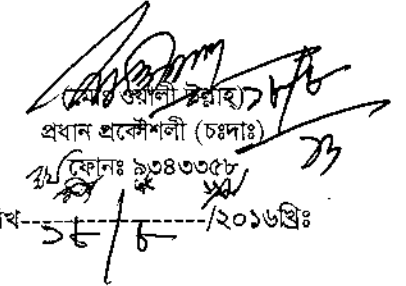 (মোঃ ওয়ালী উল্লাহ) ১৮/৮
প্রধান প্রকৌশলী (চঃদাঃ)
ফোনঃ ৯৩৪৩৩৫৮
খ------------------/২০১৬খ্রিঃ
১৮/৮